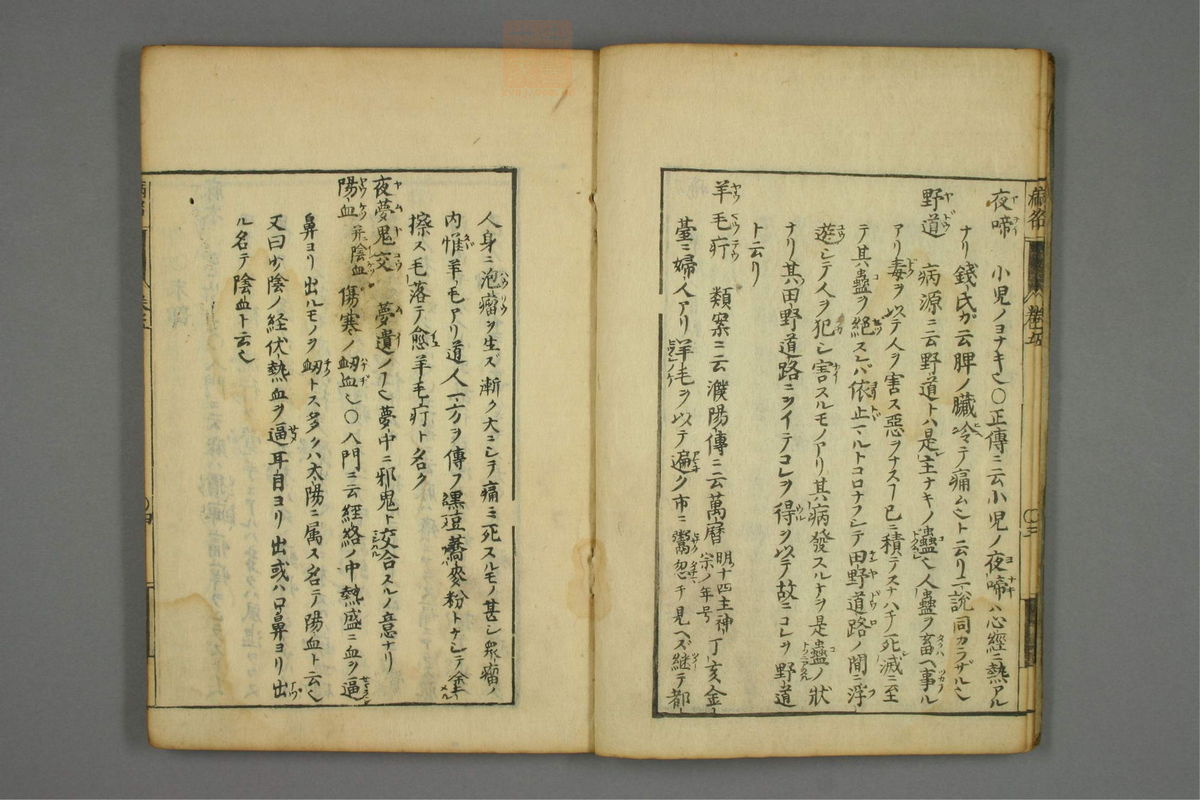 夜啼 小児ノヨナキ也〇正傳ニ云小児ノ夜啼ハ心經ニ熱アル
ナリ錢氏カ云脾ノ臓冷テ痛ムト云リ二説同カラザル也
野道 病源ニ云野道トハ是主ナキノ蠱也人蠱ヲ畜ヘ事ル
アリ毒ヲ以テ人ヲ害ス惡ヲナスヿ已ニ積テスナハチ死滅ニ至
テ其蠱ヲ絕スレバ依止マルトコロナフシテ田野道路ノ間ニ浮
遊シテ人ヲ犯シ害スルモノアリ其病發スルトキハ是蠱ノ狀
ナリ其田野道路ニヲイテコレヲ得ヲ以テ故ニコレヲ野道
ト云リ
羊毛疔 類案ニ云濮陽傳ニ云萬曆明十四主神宗ノ年号丁亥金
臺ニ婦人アリ羊毛ヲ以テ遍ク市ニ鬻忽チ見ヘズ継テ都
人身ニ泡瘤ヲ生ズ漸ク大ニシテ痛ミ死スルモノ甚シ衆瘤ノ
内惟羊毛アリ道人一方ヲ傳フ黒豆蕎麥粉トナシテ塗
擦ス毛落テ愈羊毛疔ト名ク
夜夢鬼交 夢遺ノヿ也夢中ニ邪鬼ト交合スルノ意ナリ
陽血 并陰血 傷寒ノ衂血也〇入門ニ云経絡ノ中熱盛ニ血ヲ逼
鼻ヨリ出ルモノヲ衂トス多クハ太陽ニ属ス名テ陽血ト云也
又曰少陰ノ経伏熱血ヲ逼耳目ヨリ出或ハ口鼻ヨリ出
ル名テ陰血ト云也